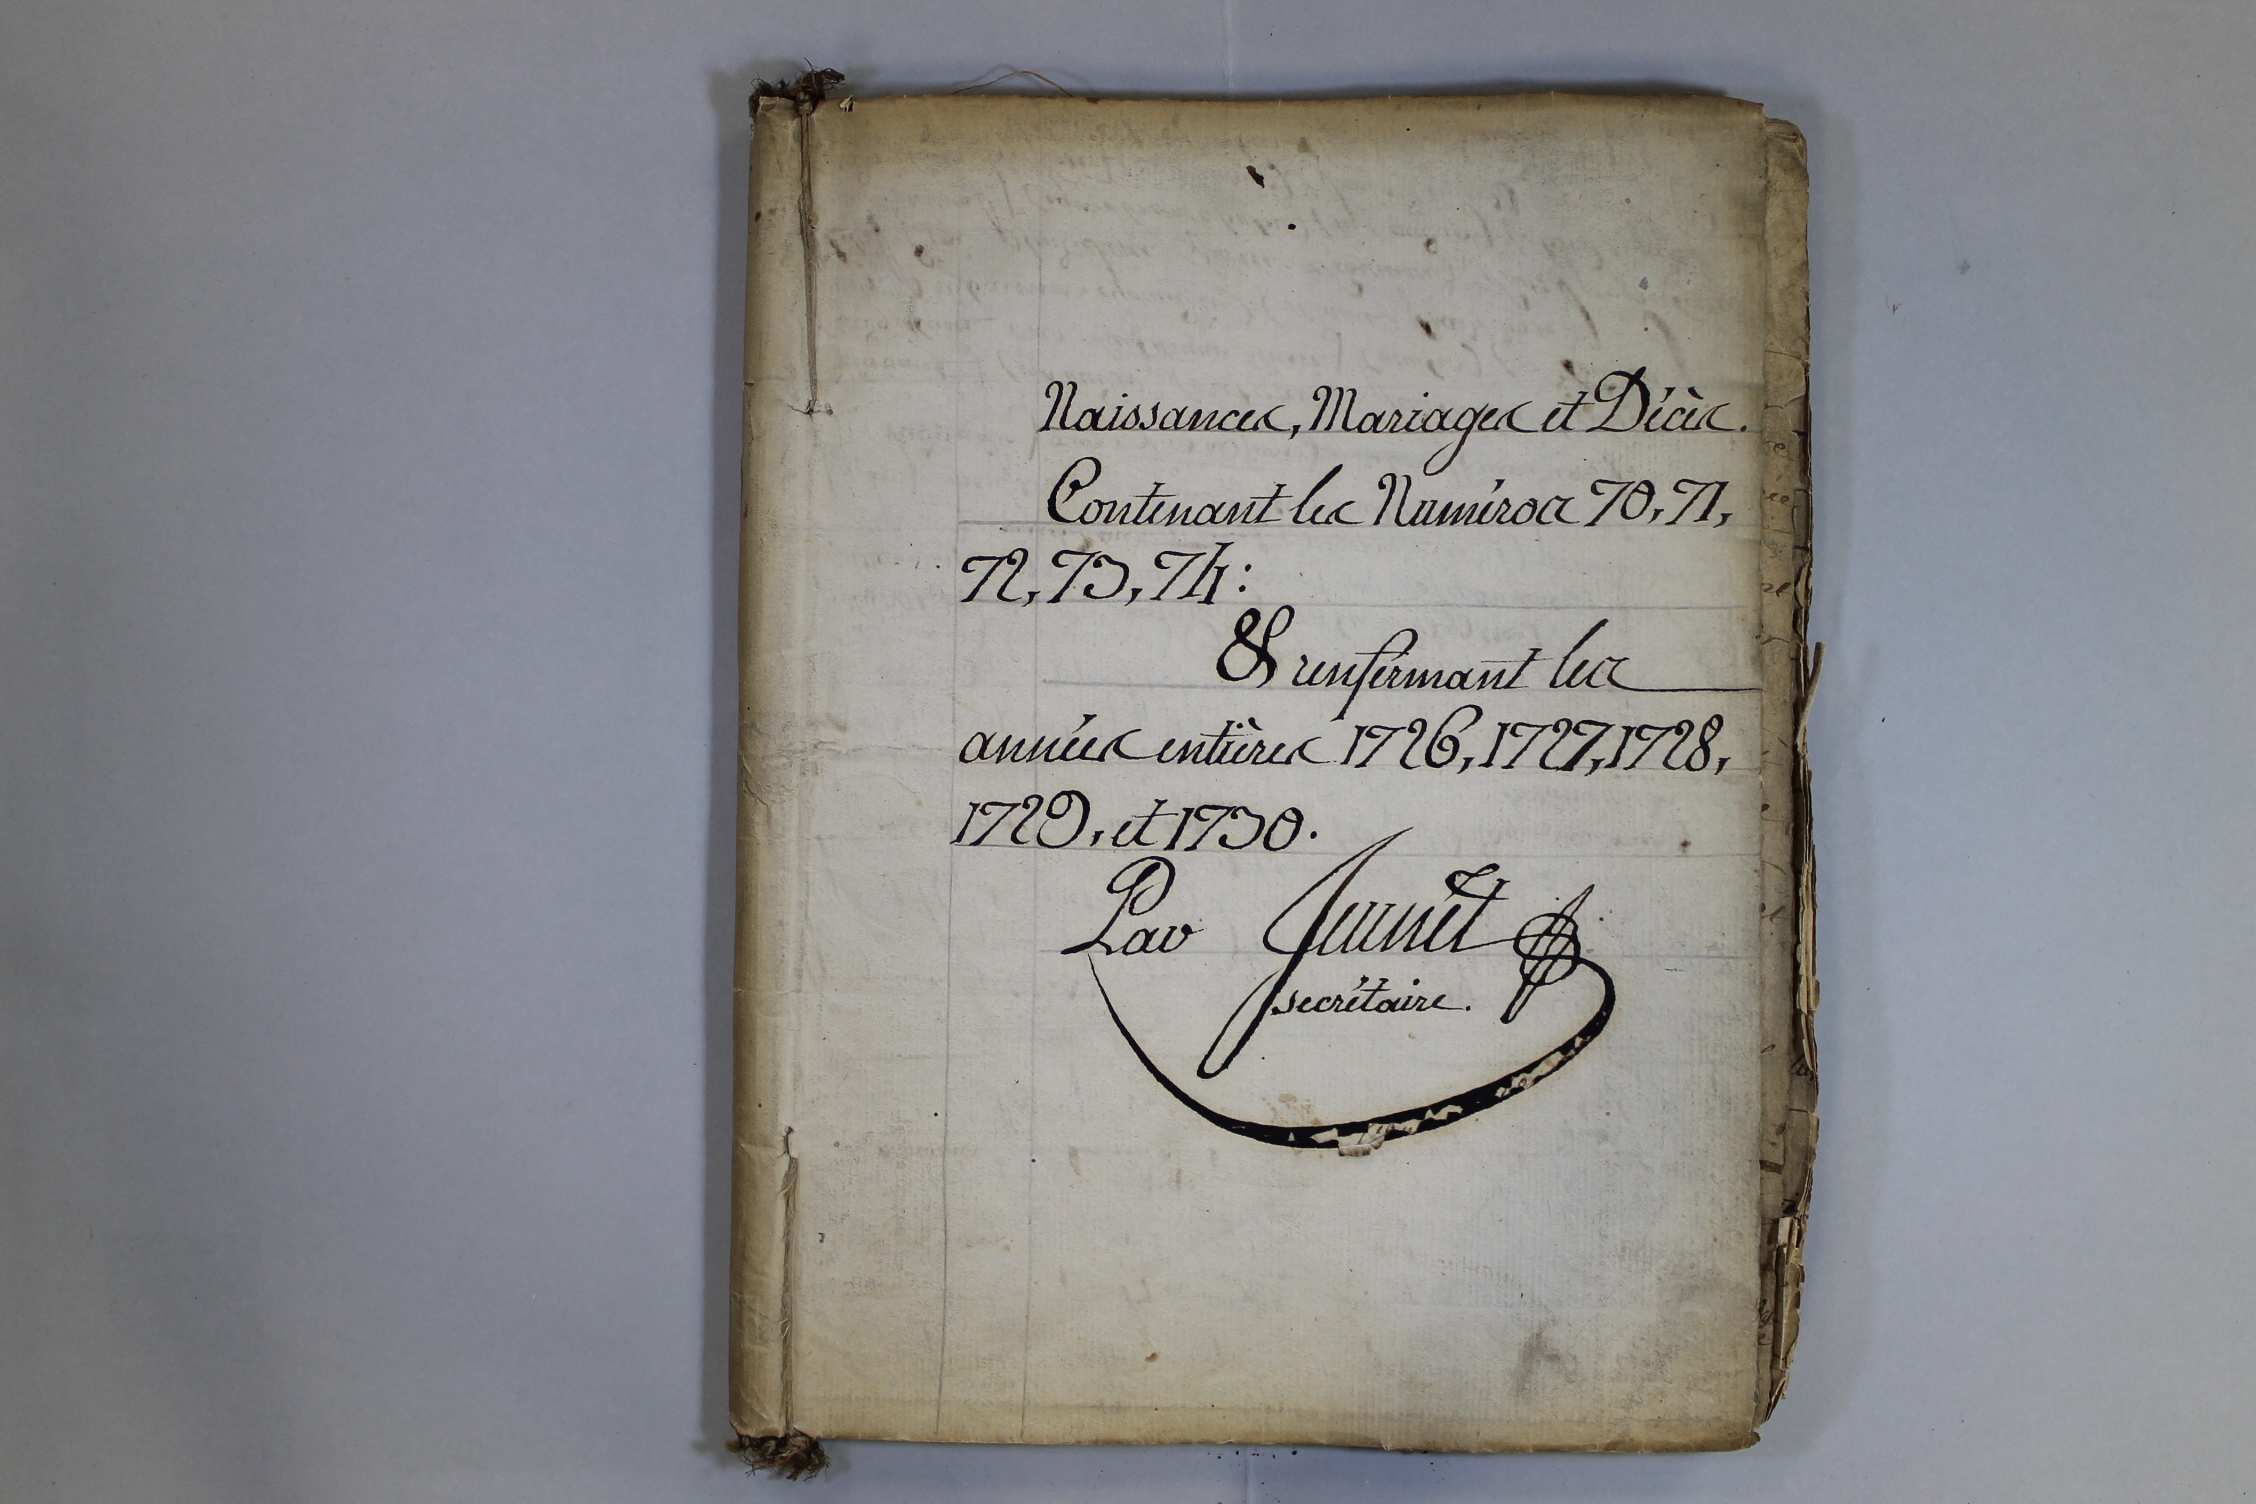 Naissances, Mariages et Décès.
Contenant les Numéros 70, 71,
72, 73, 74:
& renfermant les
années entières 1726, 1727, 1728,
1729, et 1730.
Par
secrétaire.